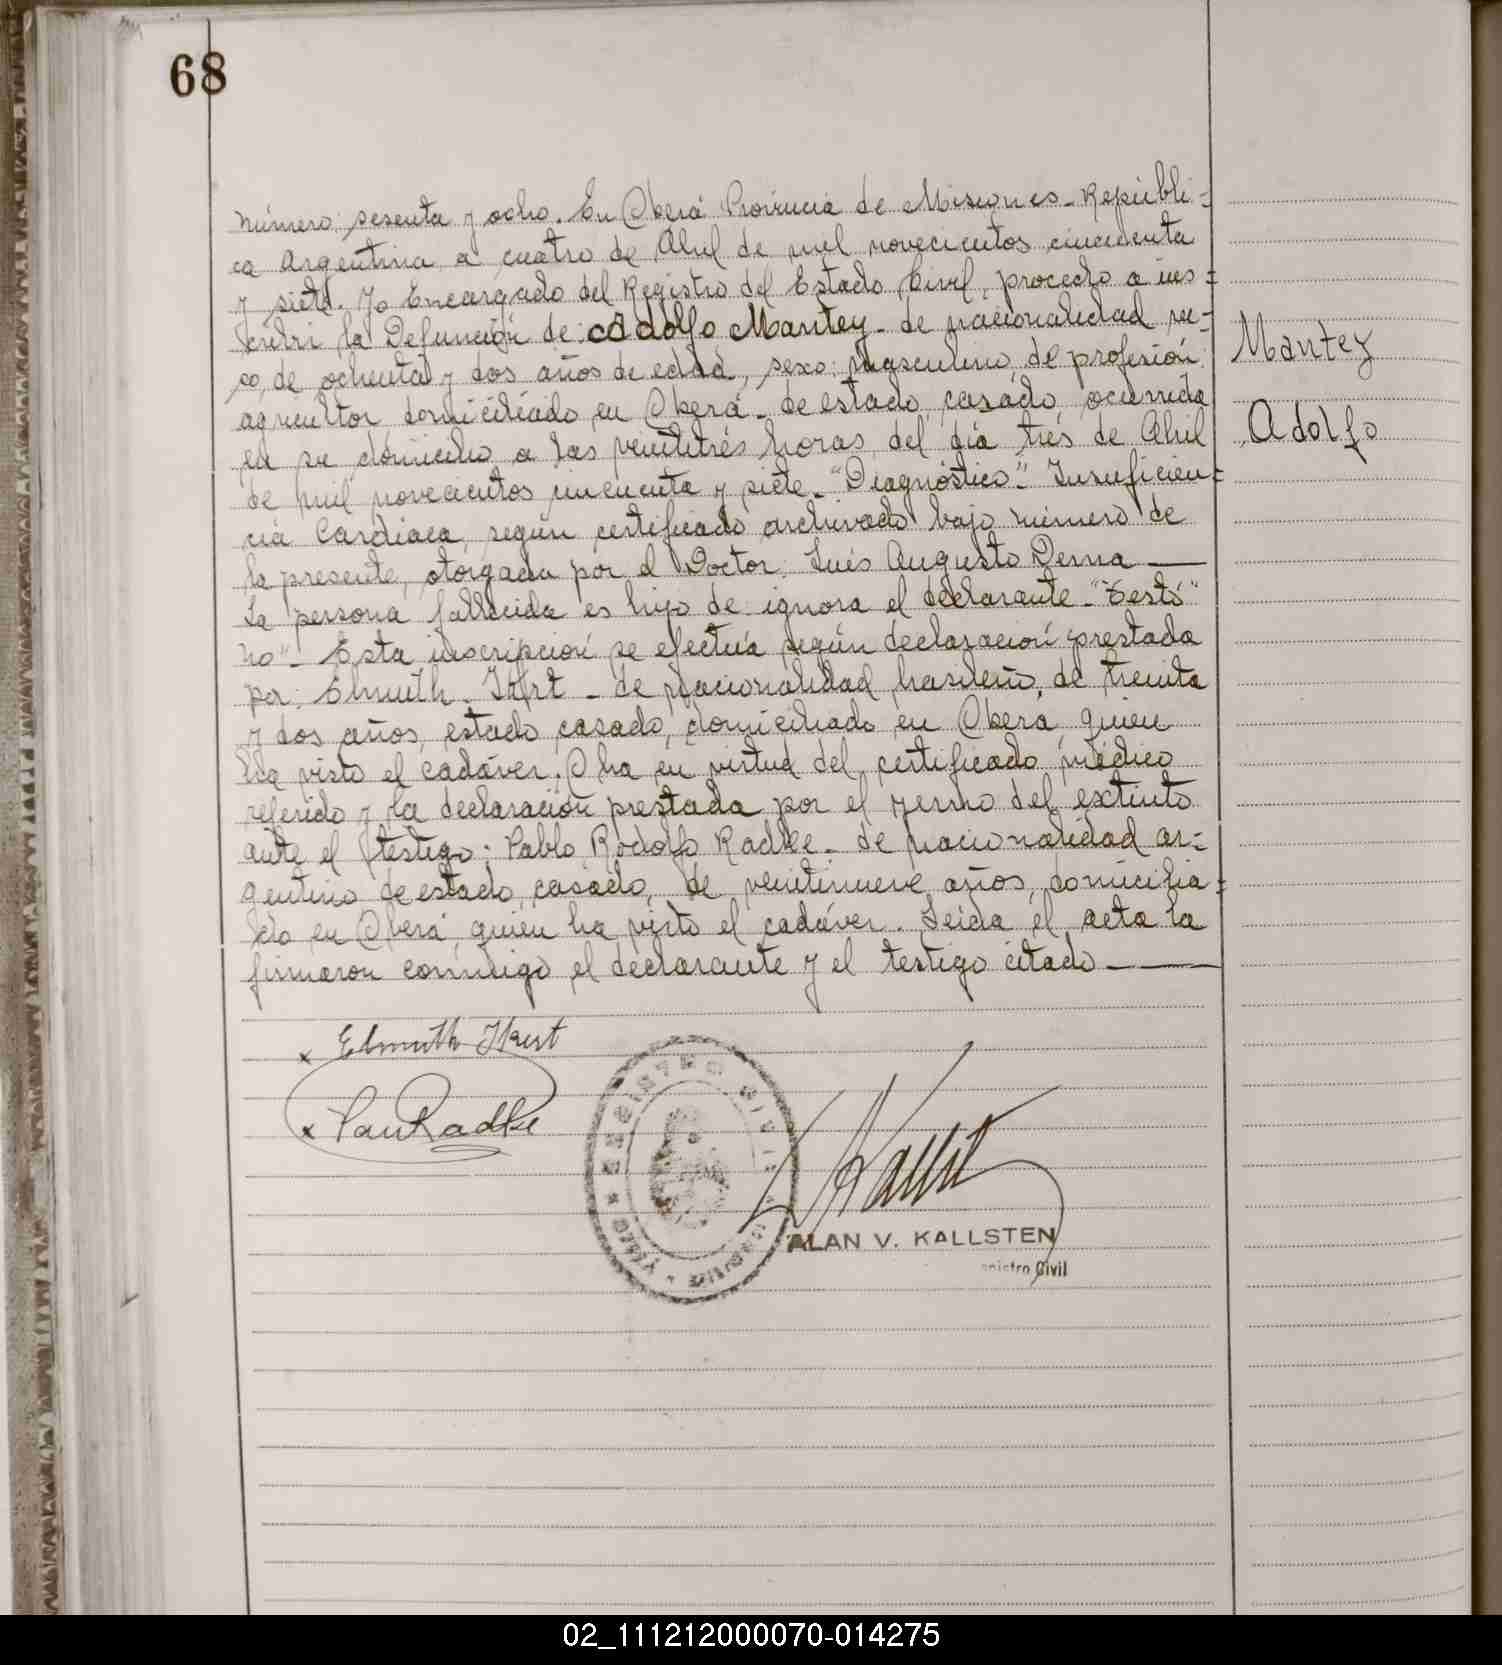 68
Número: sesenta y ocho. En Oberá Provincia de Misiones - Repúbli=
ca Argentina a cuatro de Abril de mil novecientos cincuenta
y siete. Yo Encargado del Registro del Estado Civil, procedo a ins=
cribir la Defunción de: Adolfo Mantey - de nacionalidad ru=
so, de ochenta y dos años de edad, sexo: masculino, de profesión:
agricultor domiciliado en Oberá - de estado casado, ocurrida
en su domicilio a las veintitrés horas del día tres de Abril
de mil novecientos cincuenta y siete - "Diagnóstico": Insuficien=
cia Cardíaca, según certificado archivado bajo número de
la presente, otorgada por el Doctor: Luis Augusto Derna
La persona fallecida es hijo de ignora el declarante - "Testó"
"no" - Esta inscripción se efectúa según declaración prestada
por: Elmuth - de nacionalidad brasileño, de treinta
y dos años, estado casado, domiciliado en Oberá, quien
ha visto el cadáver. O ha en virtud del certificado médico
referido y la declaración prestada por el yerno del extinto
ante el testigo: Pablo Rodolfo Radke - de nacionalidad ar=
gentino de estado casado, de veintinueve años, domicilia=
do en Oberá, quien ha visto el cadáver. Leída el acta la
firmaron conmigo el declarante y el testigo citado
Mantey
Adolfo
x Elmuth
x Pau Radke
REGISTRO CIVIL
OBERA * MISIONES
Kallst
ALAN V. KALLSTEN
Registro Civil
02_111212000070-014275